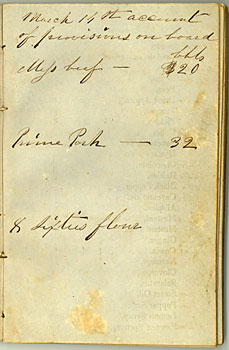 March 14th account
of provisions on board
bbls
Mess beef — 20
Prime Pork — 32
& sixties flour